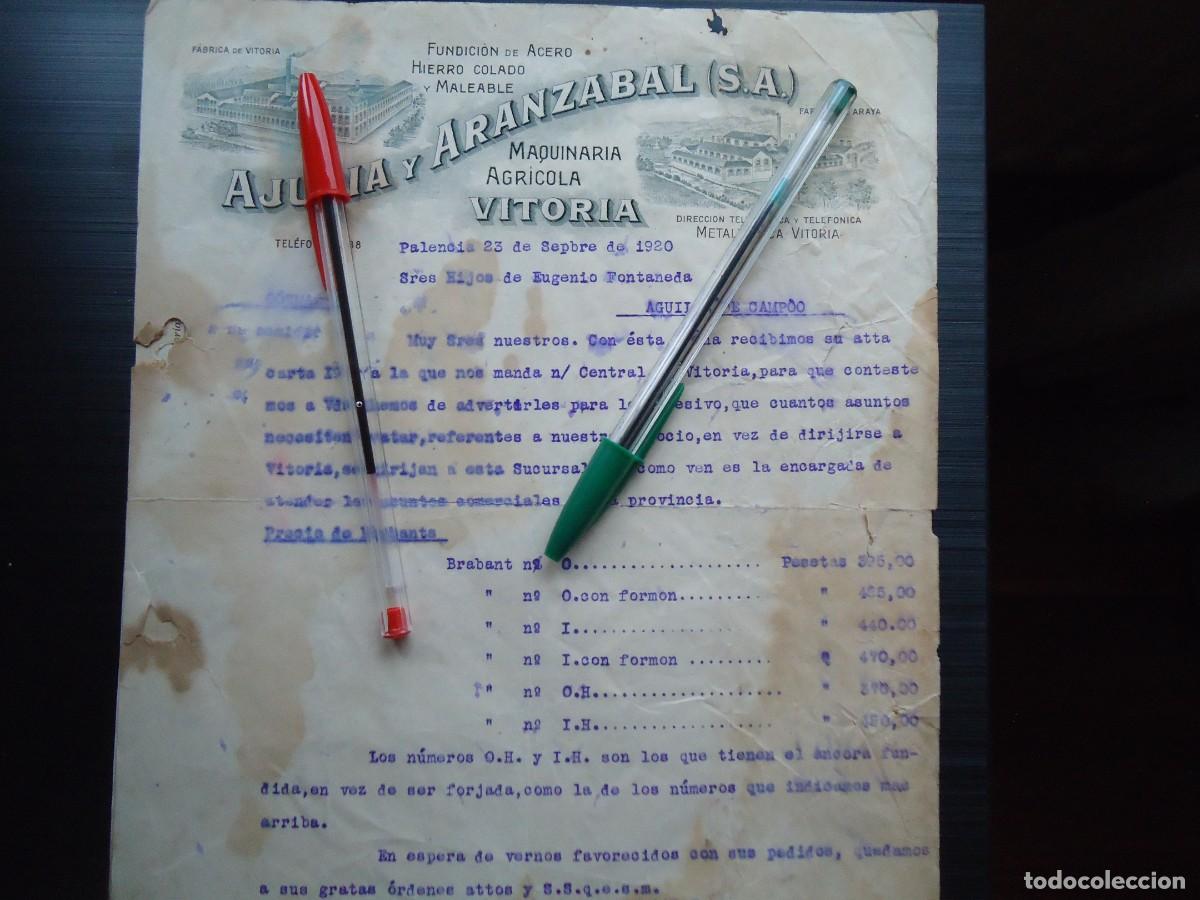 FÁBRICA DE VITORIA
FUNDICIÓN DE ACERO
HIERRO COLADO
Y MALEABLE
AJU IA Y ARANZABAL (S.A.)
FA ARAYA
MAQUINARIA
AGRÍCOLA
VITORIA
DIRECCION TEL CA Y TELEFONICA
METAL CA VITORIA
TELÉFO 38
Palencia 23 de Sepbre de 1920
Sres Hijos de Eugenio Fontaneda
AGUI E CAMPÓO
Muy Sres nuestros. Con ésta recibimos su atta
carta a la que nos manda n/ Central Vitoria,para que conteste
mos a de advertirles para lo esivo,que cuantos asuntos
necesiten tratar,referentes a nuestr ocio,en vez de dirijirse a
Vitoria,se dirijan a esta Sucursal como ven es la encargada de
atender los asuntos comerciales provincia.
Precio de
Brabant nº O..................... Pesetas 395,00
" nº O.con formon......... "
" nº I.................. " 440.00
" nº I.con formon ......... 470,00
" nº O.H..................... " 370,00
" nº I.H.................... "
Los números O.H. y I.H. son los que tienen el áncora fun-
dida,en vez de ser forjada,como la de los números que indicamos mas
arriba.
En espera de vernos favorecidos con sus pedidos, quedamos
a sus gratas órdenes attos y S.S.q.e.s.m.
todocoleccion